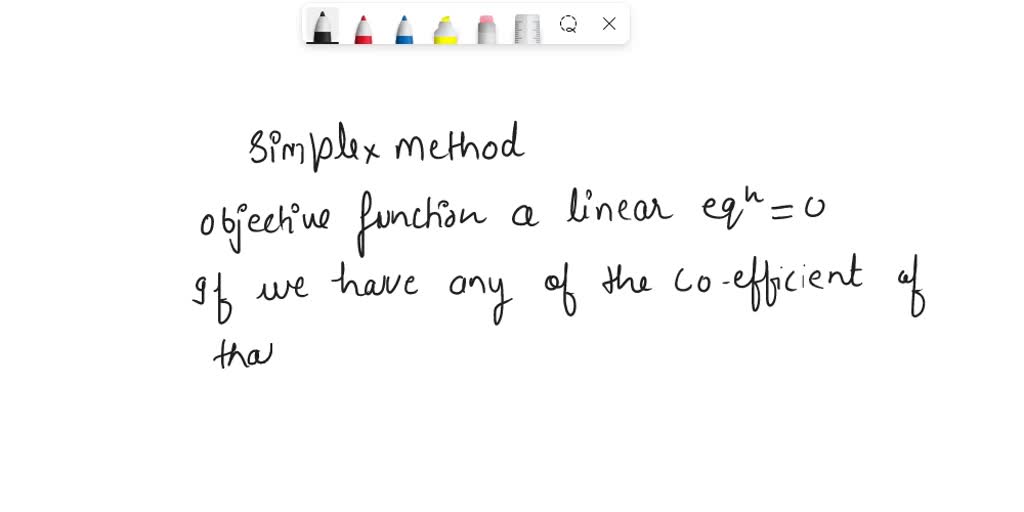 Simplex method
objective function a linear eqⁿ = 0
If we have any of the co-efficient of
tha